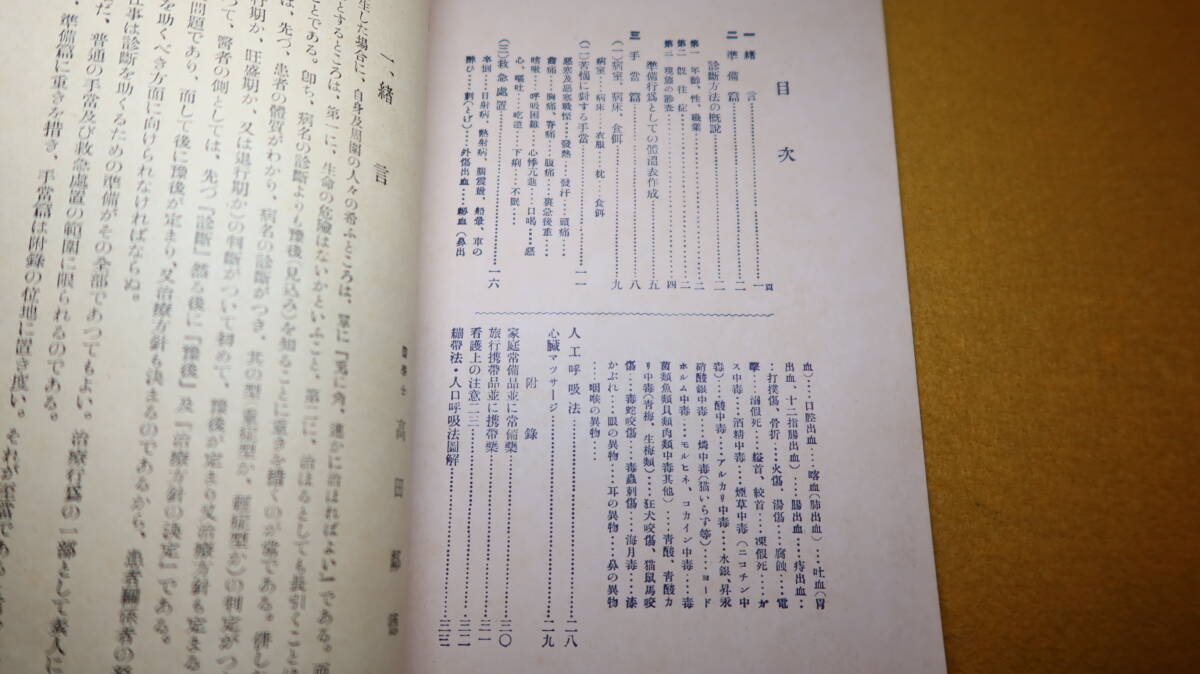 目次
一 緒言……一頁
二 準備篇……二
診斷方法の概説……二
第一 年齡、性、職業……二
第二 旣往症……二
第三 現症の診査……四
準備行爲としての體溫表作成……五
三 手當篇……八
(一)病室、病床、食餌……九
病室…病床…衣服…枕…食餌
(二)苦惱に對する手當……一一
惡寒及惡寒戰慄…發熱…發汗…頭痛…
齒痛…胸痛、脊痛…腹痛…裏急後重…
咳嗽…呼吸困難…心悸亢進…口渴…惡
心、嘔吐…吃逆…下痢…不眠…
(三)救急處置……一六
卒倒…日射病、熱射病、腦震盪、船暈、車の
醉ひ…刺(とげ)…外傷出血…衂血(鼻出
血)…口腔出血…喀血(肺出血)…吐血(胃
出血、十二指腸出血)…腸出血…痔出血…
…打撲傷、骨折…火傷、湯傷…腐蝕…電
擊…溺假死…縊首、絞首…凍假死…ガ
ス中毒…酒精中毒…煙草中毒(ニコチン中
毒)…酸中毒…アルカリ中毒…水銀、昇汞
硝酸銀中毒…燐中毒(猫いらず等)…ヨード
ホルム中毒…モルヒネ、コカイン中毒…毒
菌類魚類貝類肉類中毒其他)…靑酸、靑酸カ
リ中毒(靑梅、生梅類)…狂犬咬傷、猫鼠馬咬
傷…毒蛇咬傷…毒蟲刺傷…海月毒…漆
かぶれ…眼の異物…耳の異物…鼻の異物
…咽喉の異物…
人工呼吸法……二八
心臟マツサージ……二九
附錄
家庭常備品並に常備藥……三〇
旅行携帶品並に携帶藥……三一
看護上の注意二三……三二
繃帶法・人口呼吸法圖解……三三
一、緒言
醫學士 高田
生した場合に、自身及周圍の人々の希ふところは、單に『兎に角、速かに治ればよい』である。
とするところは、第一に、生命の危險はないかといふこと、第二に、治はるとしても長引くこと
ことである。卽ち、病名の診斷よりも豫後(見込み)を知ることに重きを措くのが常である。併し
は、先づ、患者の體質がわかり、病名の診斷がつき、其の型(重症型か、輕症型か)の判定がつ
行期か、旺盛期か、又は退行期か)の判斷がついて初めて、豫後が定まり又治療方針も定まる
つて、醫者の側としては、先づ『診斷』然る後に『豫後』及び『治療方針の決定』である。
問題であり、而して後に豫後が定まり、又治療方針も決まるのであるから、患者關係者の
を助くべき方面に向けられなければならぬ。
仕事は診斷を助くるための準備がその全部であつてもよい。治療行爲の一部として素人に
だ、普通の手當及び救急處置の範圍に限られるのである。
、準備篇に重きを措き、手當篇は附錄の位地に置き度い。それが至當であ